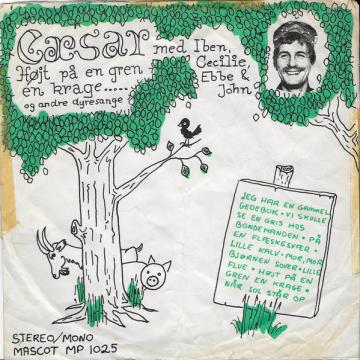 Cæsar med Iben,
Cecilie,
Ebbe &
John
Højt på en gren
en krage.....
og andre dyresange
JEG HAR EN GAMMEL
GEDEBUK • VI SKULLE
SE EN GRIS HOS
BONDEMANDEN • PÅ
EN FLÆSKESVÆR •
LILLE KALV • MOR, MOR
BJØRNEN SOVER • LILLE
FLUE • HØJT PÅ EN
GREN EN KRAGE •
NÅR SOL STÅR OP
STEREO/MONO
MASCOT MP 1025